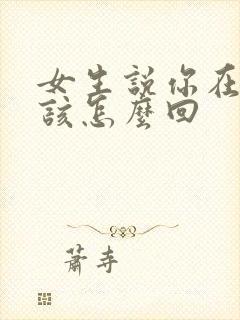 女生說你在
該怎麼回
蕭寺